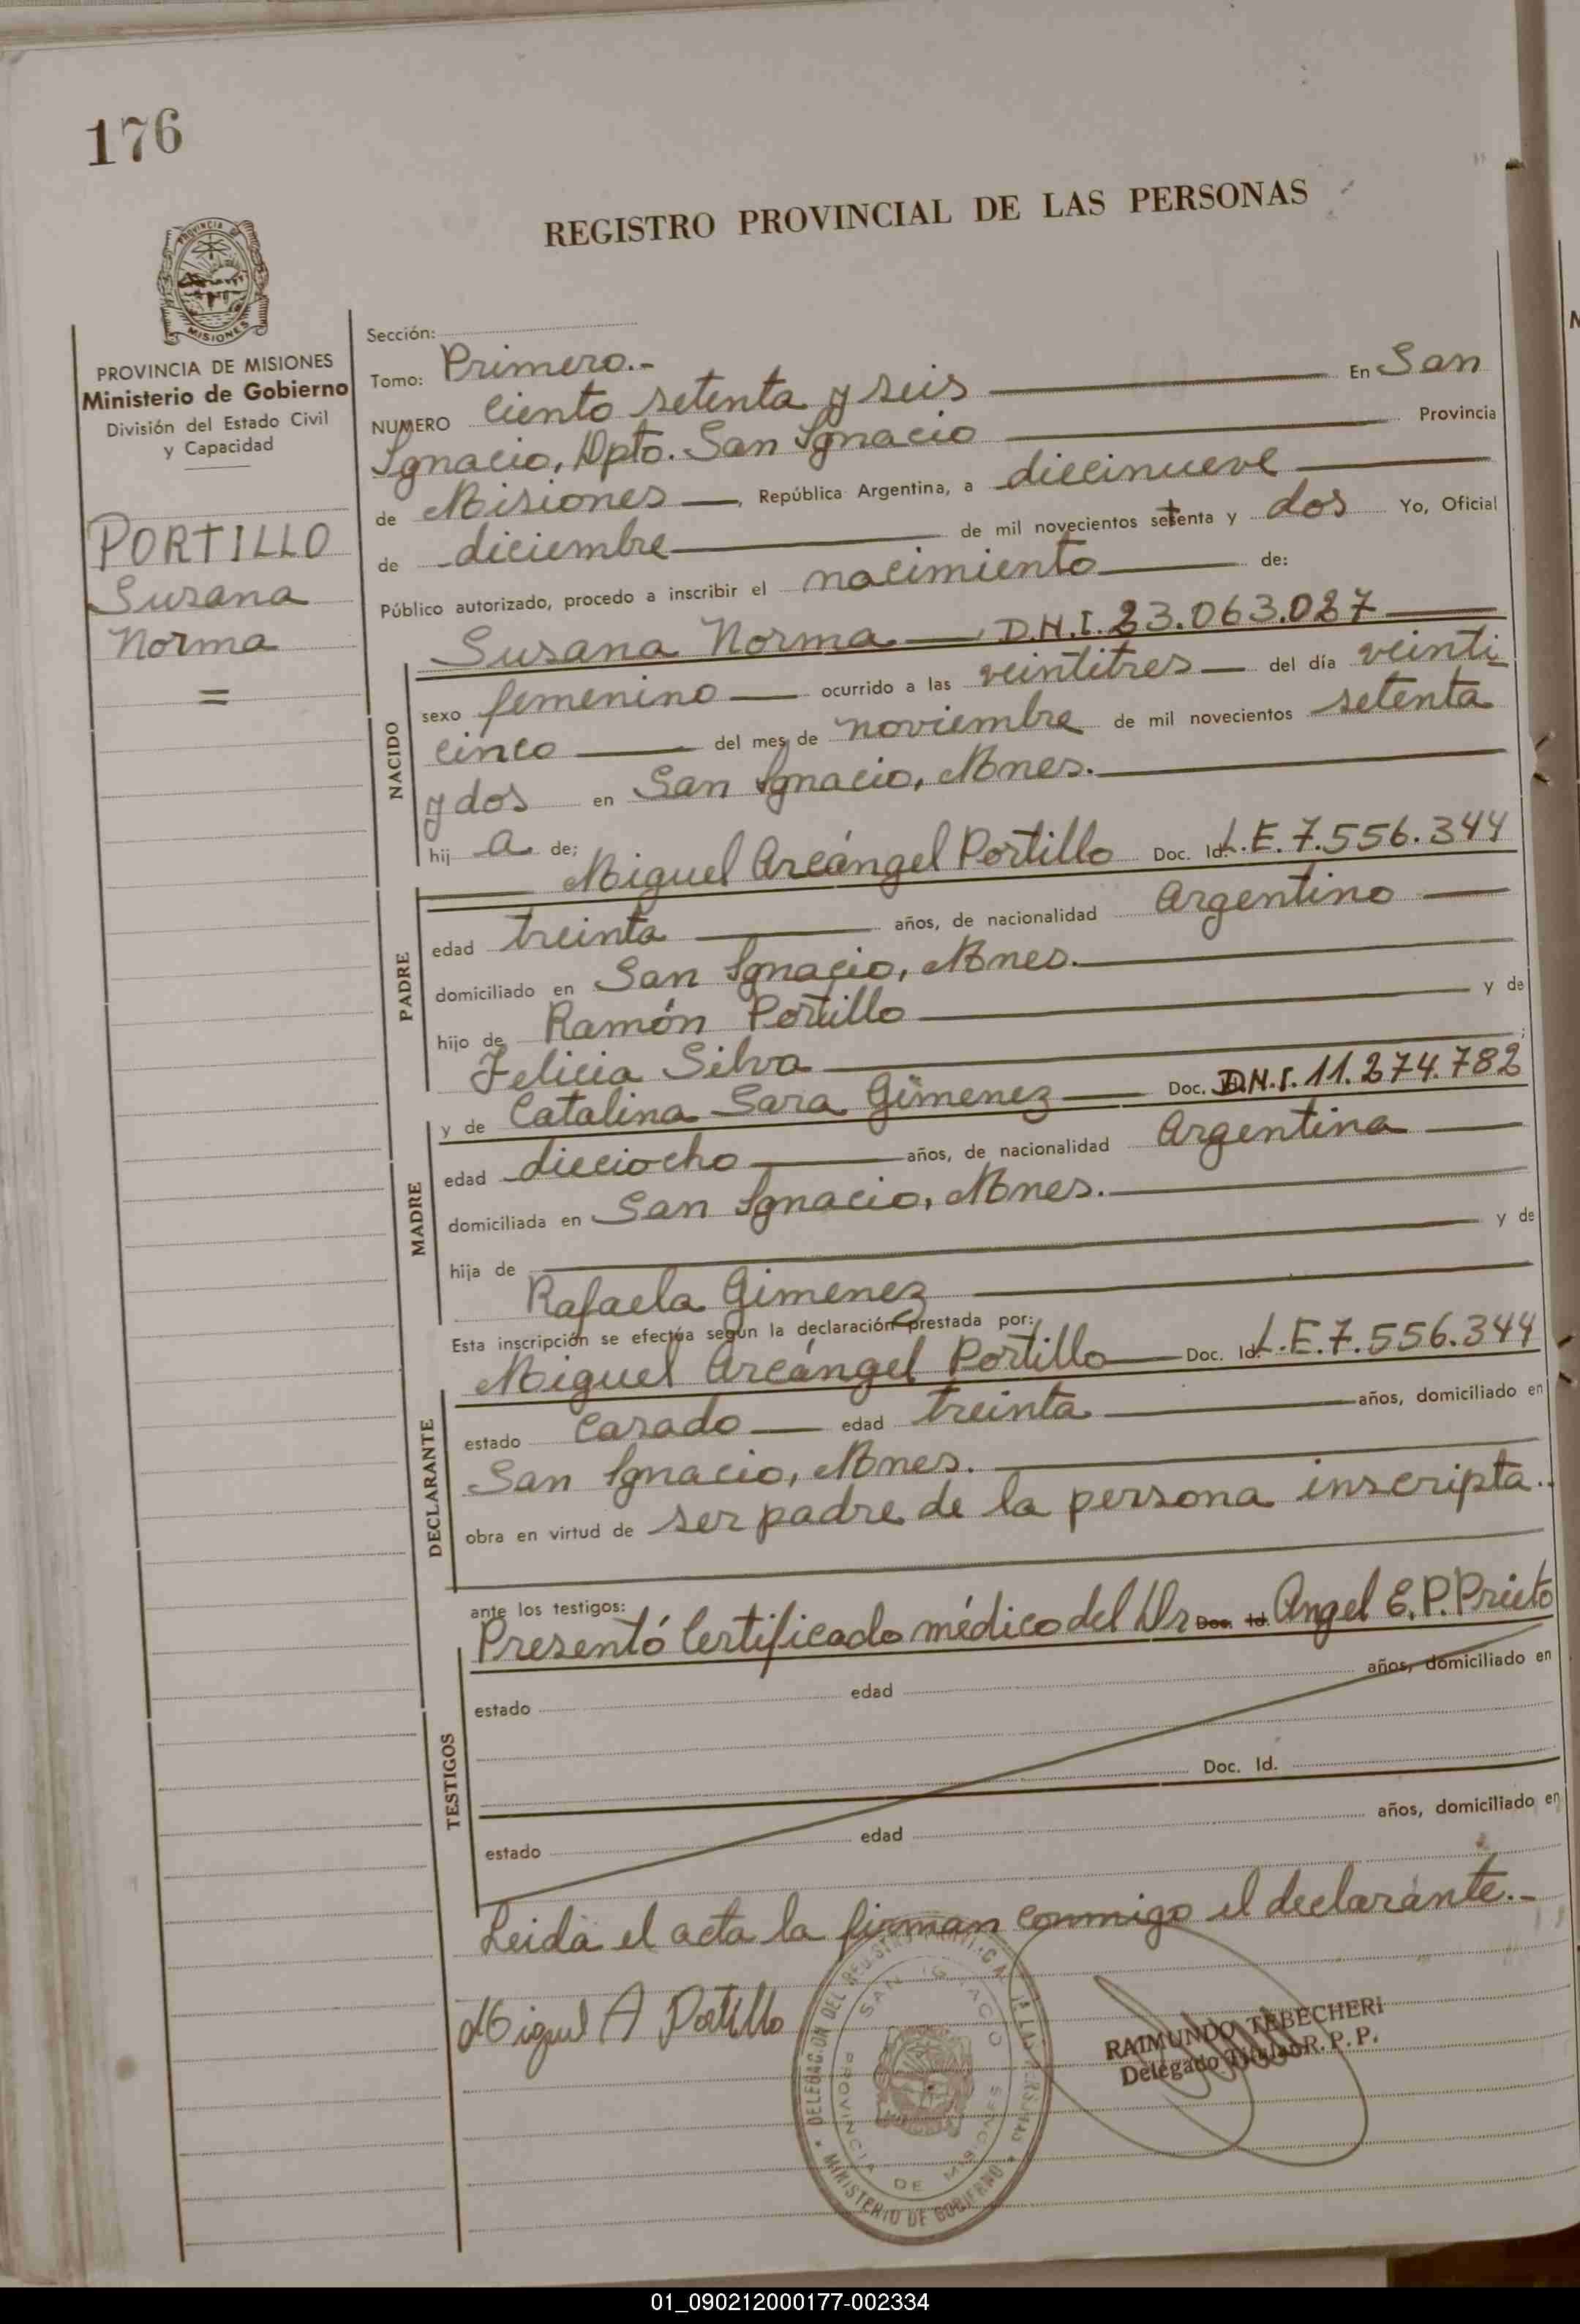 176
REGISTRO PROVINCIAL DE LAS PERSONAS
PROVINCIA DE
MISIONES
PROVINCIA DE MISIONES
Ministerio de Gobierno
División del Estado Civil
y Capacidad
PORTILLO
Susana
Norma
=
Sección:
Tomo: Primero.-
NUMERO Ciento setenta y seis En San
Ignacio, Dpto. San Ignacio Provincia
de Misiones, República Argentina, a diecinueve
de diciembre de mil novecientos setenta y dos Yo, Oficial
Público autorizado, procedo a inscribir el nacimiento de:
Susana Norma D.N.I. 23.063.027
NACIDO
sexo femenino ocurrido a las veintitres del día veinti
cinco del mes de noviembre de mil novecientos setenta
y dos en San Ignacio, Mnes.
hij a de;
Miguel Arcángel Portillo Doc. Id. L.E. 7.556.344
PADRE
edad treinta años, de nacionalidad Argentino
domiciliado en San Ignacio, Mnes.
hijo de Ramón Portillo y de
Felicia Silva ;
y de Catalina Sara Gimenez Doc. D.N.I. 11.274.782
MADRE
edad dieciocho años, de nacionalidad Argentina
domiciliada en San Ignacio, Mnes.
hija de y de
Rafaela Gimenez
Esta inscripción se efectúa según la declaración prestada por:
Miguel Arcángel Portillo Doc. Id. L.E. 7.556.344
DECLARANTE
estado Casado edad treinta años, domiciliado en
San Ignacio, Mnes.
obra en virtud de ser padre de la persona inscripta..
ante los testigos:
Presentó Certificado médico del Dr Doc. Id. Angel E. P. Prieto
TESTIGOS
estado edad años, domiciliado en
Doc. Id.
estado edad años, domiciliado en
Leida el acta la firman conmigo el declarante.-
Miguel A Portillo
DELEGACION DEL REGISTRO PROVINCIAL DE LAS PERSONAS
SAN IGNACIO
PROVINCIA DE MISIONES
MINISTERIO DE GOBIERNO
RAIMUNDO TEBECHERI
Delegado Titular R. P. P.
01_090212000177-002334